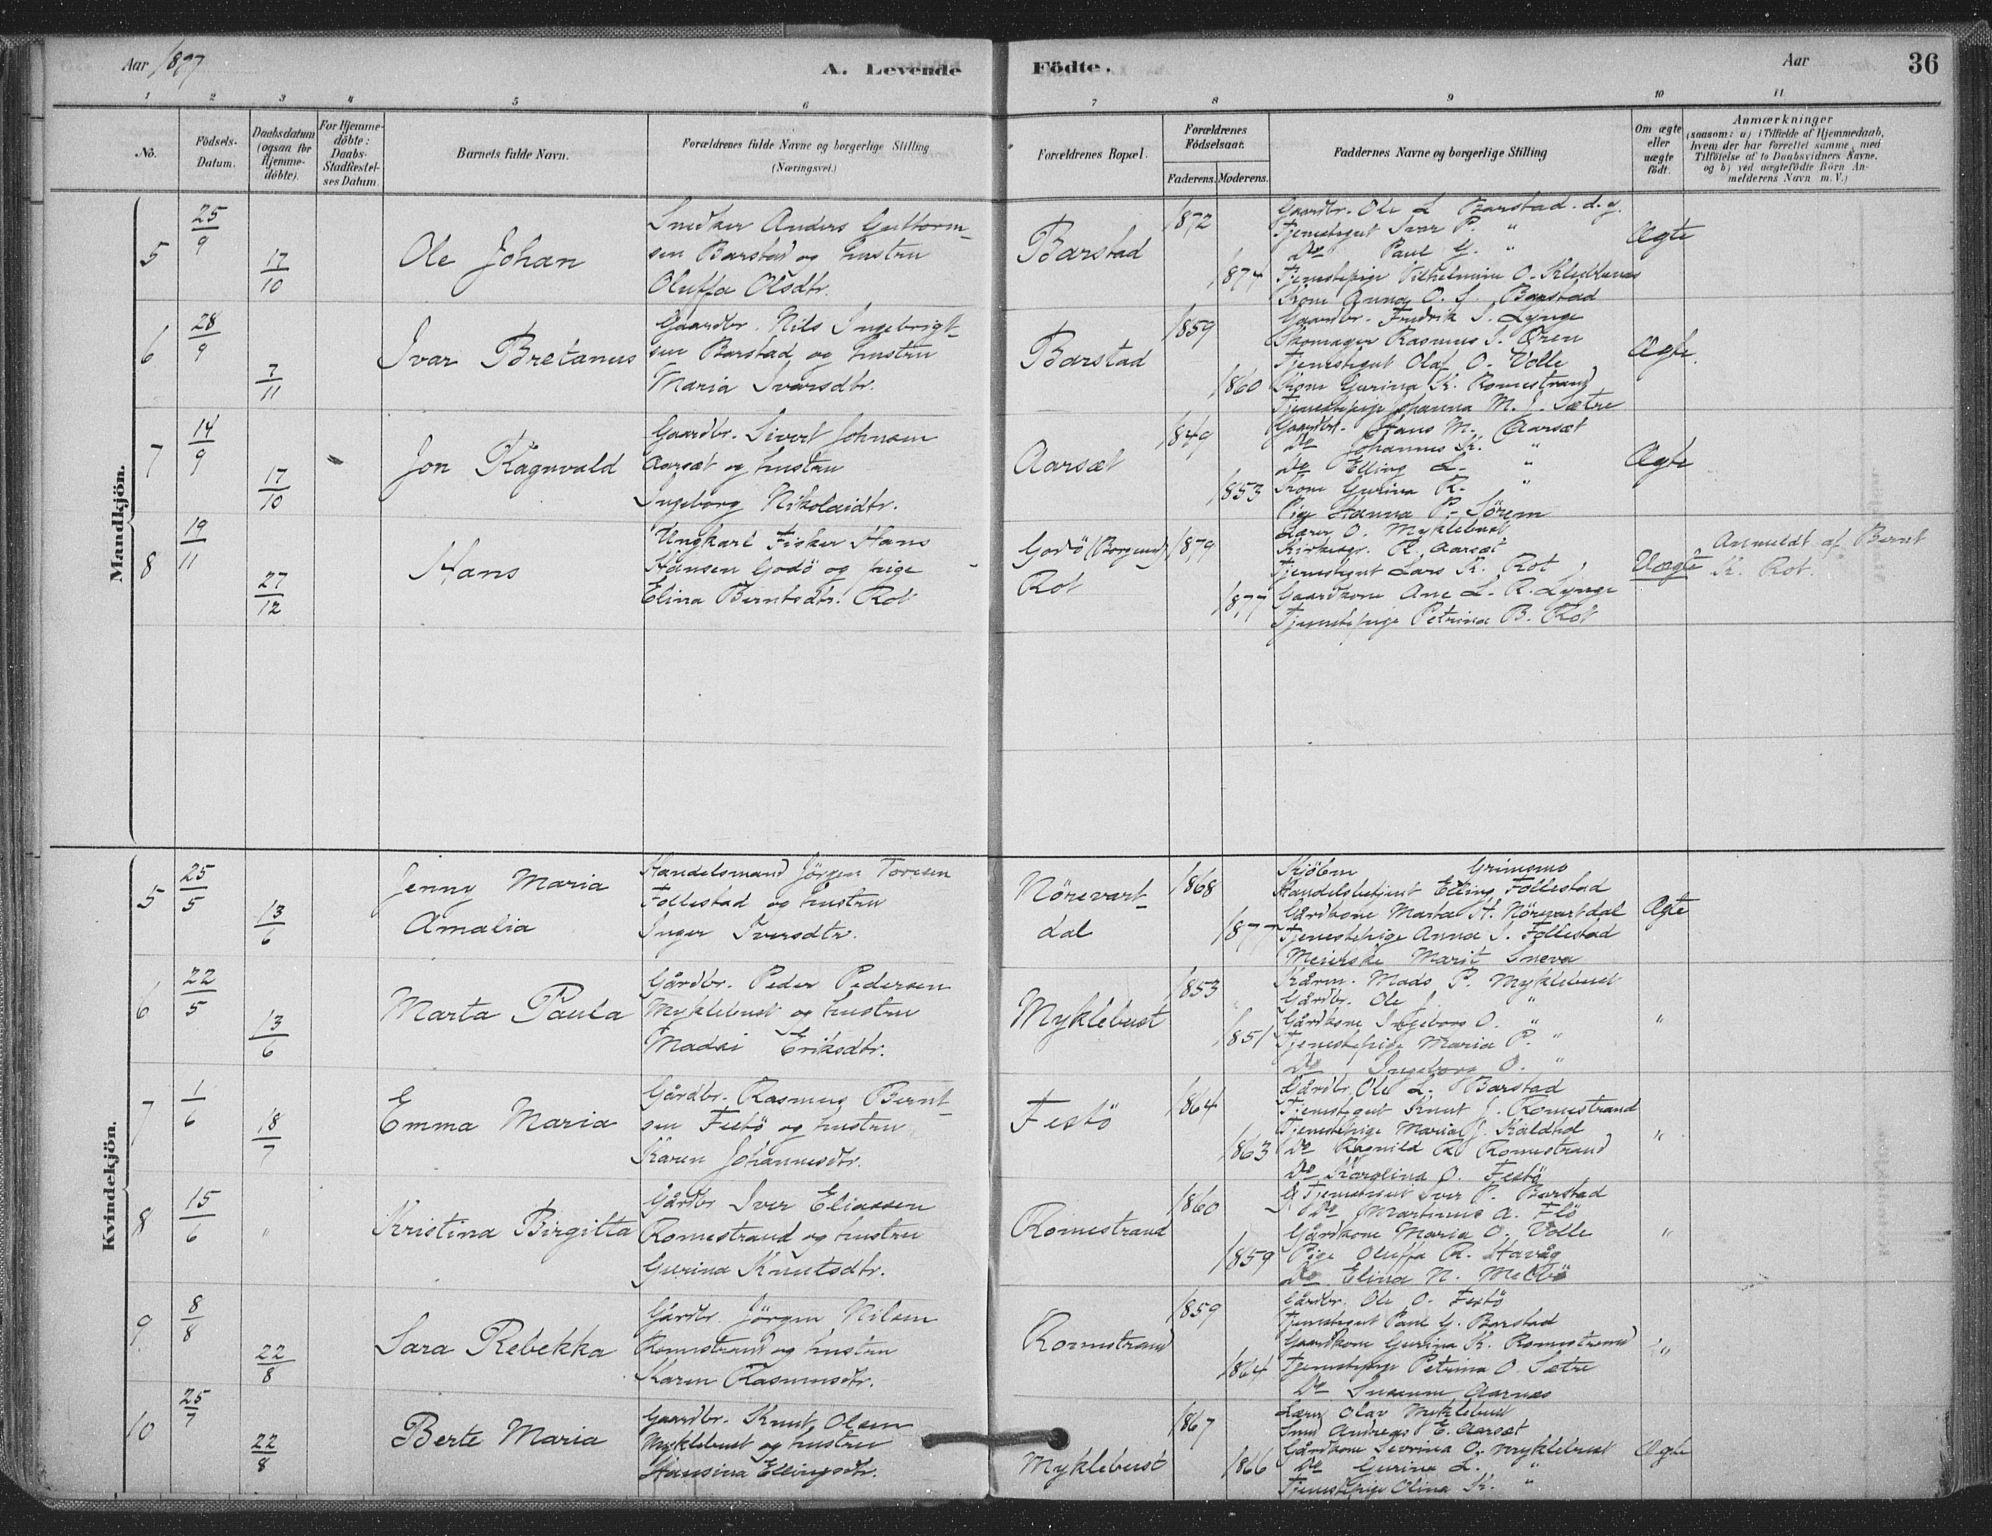 Aar 1897
A. Levende
Födte.
Aar
36
1 2 3 4 5 6 7 8 9 10 11
No.
Födsels-
Datum.
Daabsdatum
(ogsaa for
Hjemme-
döbte).
For Hjemme-
döbte:
Daabs-
Stadfæstel-
ses Datum
Barnets fulde Navn.
Forældrenes fulde Navne og borgerlige Stilling
(Næringsvei.)
Forældrenes Bopæl.
Forældrenes
Födselsaar.
Faderens. Moderens.
Faddernes Navne og borgerlige Stilling
Om ægte
eller
uægte
födt.
Anmærkninger
(saasom: a) i Tilfælde af Hjemmedaab,
hvem der har forrettet samme, med
Tilföielse af to Daabsvidners Navne,
og b) ved uægtefödte Börn An-
melderens Navn m. V.)
Mandkjön.
5
25/9
17/10
Ole Johan
Snedker Anders Guttorm-
sen Barstad og hustru
Oluffa Olsdtr.
Barstad
1872
1874
Gaardbr. Ole L. Barstad d. y.
Tjenestegut Ivar P. "
Do Paul G. "
Tjenestepige Vilhelmine O.
Kone Anna O. S. Barstad
Ægte
6
28/9
7/11
Ivar Bretanus
Gaardbr. Nils Ingebrigt-
sen Barstad og hustru
Maria Ivarsdtr.
Barstad
1859
1860
Gaardbr. Fredrik S. Lynge
Skomager Rasmus I. Ören
Tjenestegut Olaf O. Volle
Kone Gurina K. Romestrand
Tjenestepige Johanna M. J. Sætre
Ægte.
7
14/9
17/10
Jon Ragnvald
Gaardbr. Sivert Johnsen
Aarsæt og hustru
Ingeborg Nikolaidtr.
Aarsæt
1849
1853
Gaardbr. Hans M. Aarsæt
Do Johannes K. "
Do Elling L. "
Kone Gurina R. "
Pige Hanna P. Sörem
Ægte
8
19/11
27/12
Hans
Ungkarl Fisker Hans
Hansen Godö og pige
Elina Berntsdtr. Rot
Godö (Borgund)
Rot
1879
1877
Lærer O. Myklebust
Kirkesgr. R. Aarsæt
Tjenestegut Lars K. Rot
Gaardkone Ane L. R. Lynge
Tjenestepige Petrina B. Rot
Uægte
Anmeldt af Bernt
K. Rot.
Kvindekjön.
5
25/5
13/6
Jenny Maria
Amalia
Handelsmand Jörgen Toresen
Follestad og hustru
Inger Iversdtr.
Nörevart-
dal
1868
1877
Kjöbm. Grimsmo
Handelsbetjent Elling Follestad
Gårdkone Marta H. Nörvartdal
Tjenestepige Anna S. Follestad
Meierske Marit Sneva
Ægte
6
22/5
13/6
Marta Paula
Gårdbr. Peder Pedersen
Myklebust og hustru
Madsi Eriksdtr.
Myklebust
1853
1851
Kårm. Mads P. Myklebust
Gårdbr. Ole J. "
Gårdkone Ingeborg O. "
Tjenestepige Maria P. "
Do Ingeborg O. "
"
7
1/6
18/7
Emma Maria
Gårdbr. Rasmus Bernt-
sen Festö og hustru
Karen Johannesdtr.
Festö
1864
1863
Gårdbr. Ole L. Barstad
Tjenestegut Knut J. Romestrand
Tjenestepige Maria J. Kaldhol
Do Ragnild R. Romestrand
Do Karolina O. Festö
"
8
15/6
"
Kristina Birgitta
Gårdbr Iver Eliassen
Romestrand og hustru
Gurina Knutsdtr.
Romestrand
1860
1859
Tjenestegut Iver P. Barstad
Do Martinus A. Flö
Gårdkone Maria O. Volle
Pige Oluffa R. Havåg
Do Elina N. Meltö
"
9
8/8
22/8
Sara Rebekka
Gårdbr. Jörgen Nilsen
Romestrand og hustru
Karen Rasmusdtr.
Romestrand
1859
1864
Gårdbr. Ole O. Festö
Tjenestegut Paul G. Barstad
Gaardkone Gurina K. Romestrand
Tjenestepige Petrina O. Sætre
Do Susanne Aarnes
"
10
25/7
22/8
Berte Maria
Gaardbr. Knut Olsen
Myklebust og hustru
Hansina Ellingsdtr.
Myklebust
1867
1866
Lærer Olav Myklebust
Smed Andreas E. Aarsæt
Gårdkone Severina O. Myklebust
Do Gurine L. "
Tjenestepige Olina K. "
Ægte